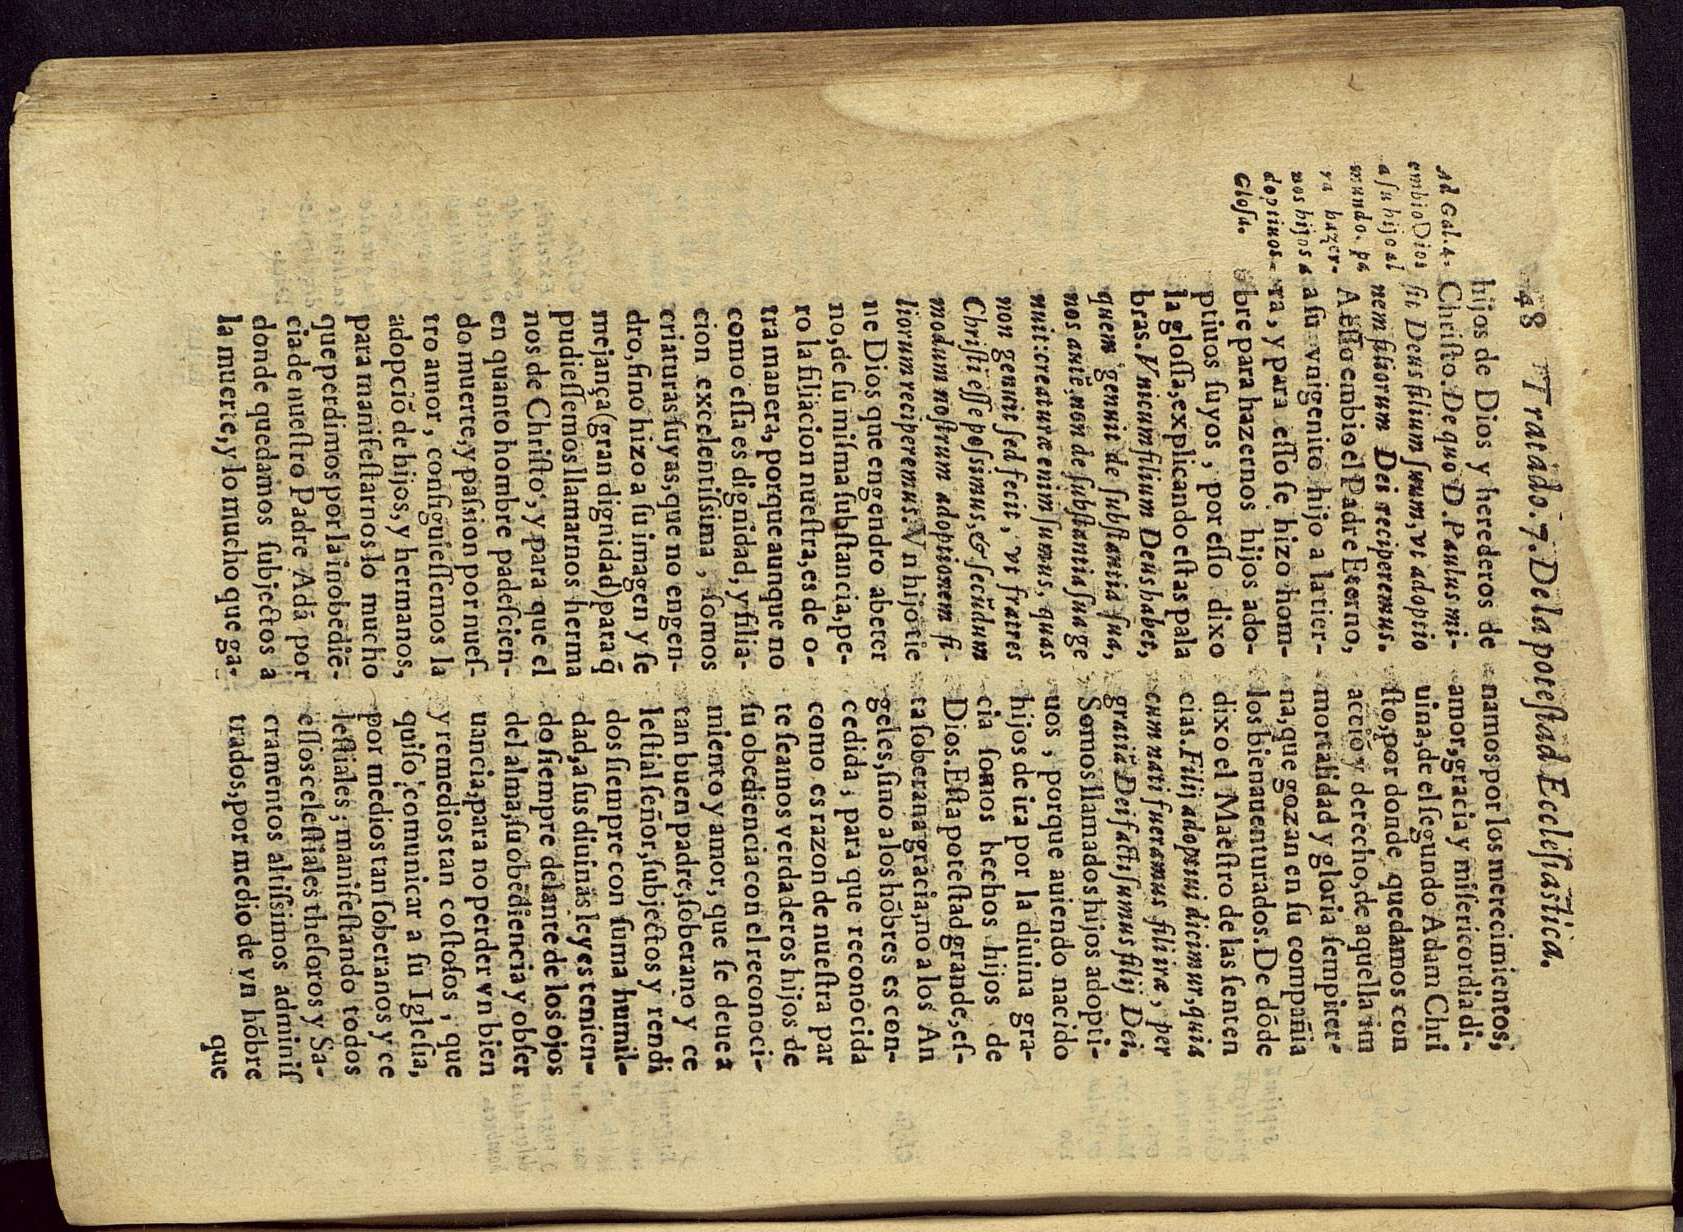 48 Tratado. 7. De la poteſtad Eccleſiaſtica.
Ad Gal. 4.
embio Dios
a ſu hijo al
mundo. pa
ra hazer-
nos hijos a
doptiuos.
Gloſa.
hijos de Dios y herederos de
Chriſto. De quo D. Paulus mi-
ſit Deus filium ſuum, vt adoptio
nem filiorum Dei reciperemus.
A eſſo embio el Padre Eterno,
a ſu vnigenito hijo a la tier-
ra, y para eſſo ſe hizo hom-
bre para hazernos hijos ado-
ptiuos ſuyos, por eſſo dixo
la gloſſa, explicando eſtas pala
bras. Vnicum filium Deus habet,
quem genuit de ſubſtantia ſua,
nos autẽ, non de ſubſtantia ſua ge
nuit: creaturæ enim ſumus, quas
non genuit ſed fecit, vt fratres
Chriſti eſſe poſsimus, & ſecũdum
modum noſtrum adoptionem fi-
liorum reciperemus. Vn hijo tie
ne Dios que engendro ab eter
no, de ſu miſma ſubſtancia, pe-
ro la filiacion nueſtra, es de o-
tra manera, porque aunque no
como eſſa es dignidad, y filia-
cion excelentiſsima, ſomos
criaturas ſuyas, que no engen-
dro, ſino hizo a ſu imagen y ſe
mejança (gran dignidad) para q̃
pudieſſemos llamarnos herma
nos de Chriſto, y para que el
en quanto hombre padeſcien-
do muerte, y paſsion por nueſ-
tro amor, conſiguieſſemos la
adopciõ de hijos, y hermanos,
para manifeſtarnos lo mucho
que perdimos por la inobediẽ-
cia de nueſtro Padre Adã por
donde quedamos ſubjectos a
la muerte, y lo mucho que ga-
namos por los merecimientos,
amor, gracia y miſericordia di-
uina, de el ſegundo Adam Chri
ſto, por donde quedamos con
acciõ y derecho, de aquella im
mortalidad y gloria ſempiter-
na, que gozan en ſu compañia
los bienauenturados. De dõde
dixo el Maeſtro de las ſenten
cias. Filij adoptiui dicimur, quia
cum nati fueramus filij iræ, per
gratiã Dei facti ſumus filij Dei.
Somos llamados hijos adopti-
uos, porque auiendo nacido
hijos de ira por la diuina gra-
cia ſomos hechos hijos de
Dios. Eſta poteſtad grande, eſ-
ta ſoberana gracia, no a los An
geles, ſino a los hõbres es con-
cedida, para que reconocida
como es razon de nueſtra par
te ſeamos verdaderos hijos de
ſu obediencia con el reconoci-
miento y amor, que ſe deue a
tan buen padre, ſoberano y ce
leſtial ſeñor, ſubjectos y rendi
dos ſiempre con ſuma humil-
dad, a ſus diuinas leyes tenien-
do ſiempre delante de los ojos
del alma, ſu obediencia y obſer
uancia, para no perder vn bien
y remedios tan coſtoſos, que
quiſo, comunicar a ſu Igleſia,
por medios tan ſoberanos y ce
leſtiales, manifeſtando todos
eſſos celeſtiales theſoros y Sa-
cramentos altiſsimos adminiſ
trados, por medio de vn hõbre
que